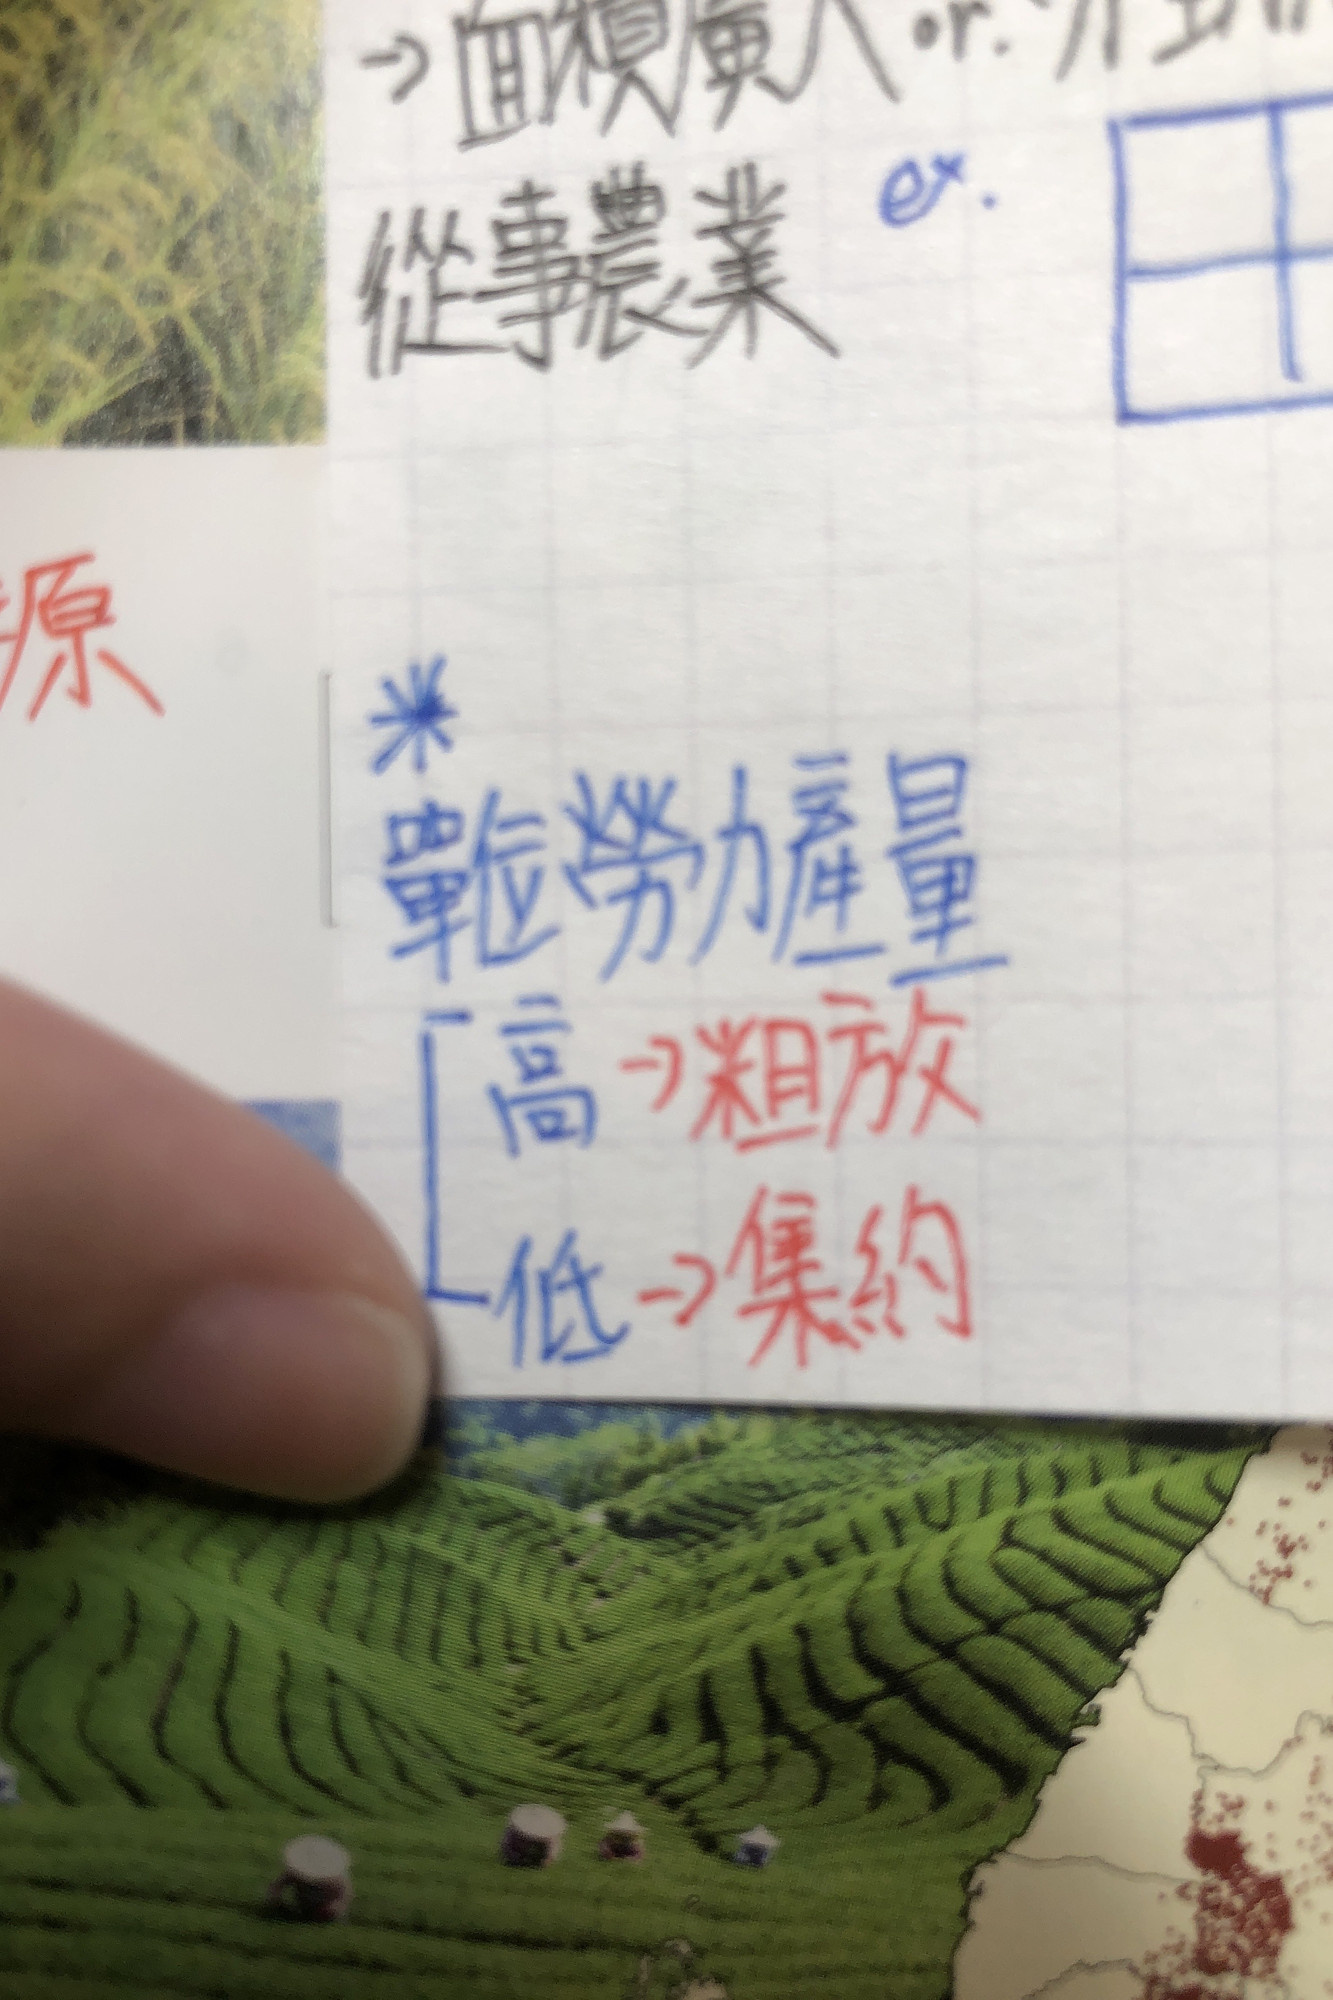 →面積廣大 or.
從事農業 ex.
原
*
單位勞力產量
高→粗放
低→集約